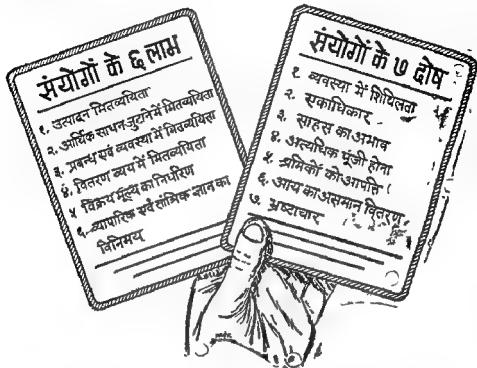 संयोगों के ६ लाभ
१. उत्पादन मितव्ययिता
२. आर्थिक साधन जुटाने में मितव्ययिता
३. प्रबन्ध एवं व्यवस्था में मितव्ययिता
४. वितरण व्यय में मितव्ययिता
५ विक्रय मूल्य का निर्धारण
६. व्यापारिक एवं तांत्रिक ज्ञान का
विनिमय
संयोगों के ७ दोष
१. व्यवस्था में शिथिलता
२. एकाधिकार
३. साहस का अभाव
४. अत्यधिक पूंजी होना
५. श्रमिकों को आपत्ति
६. आय का असमान वितरण
७. भ्रष्टाचार